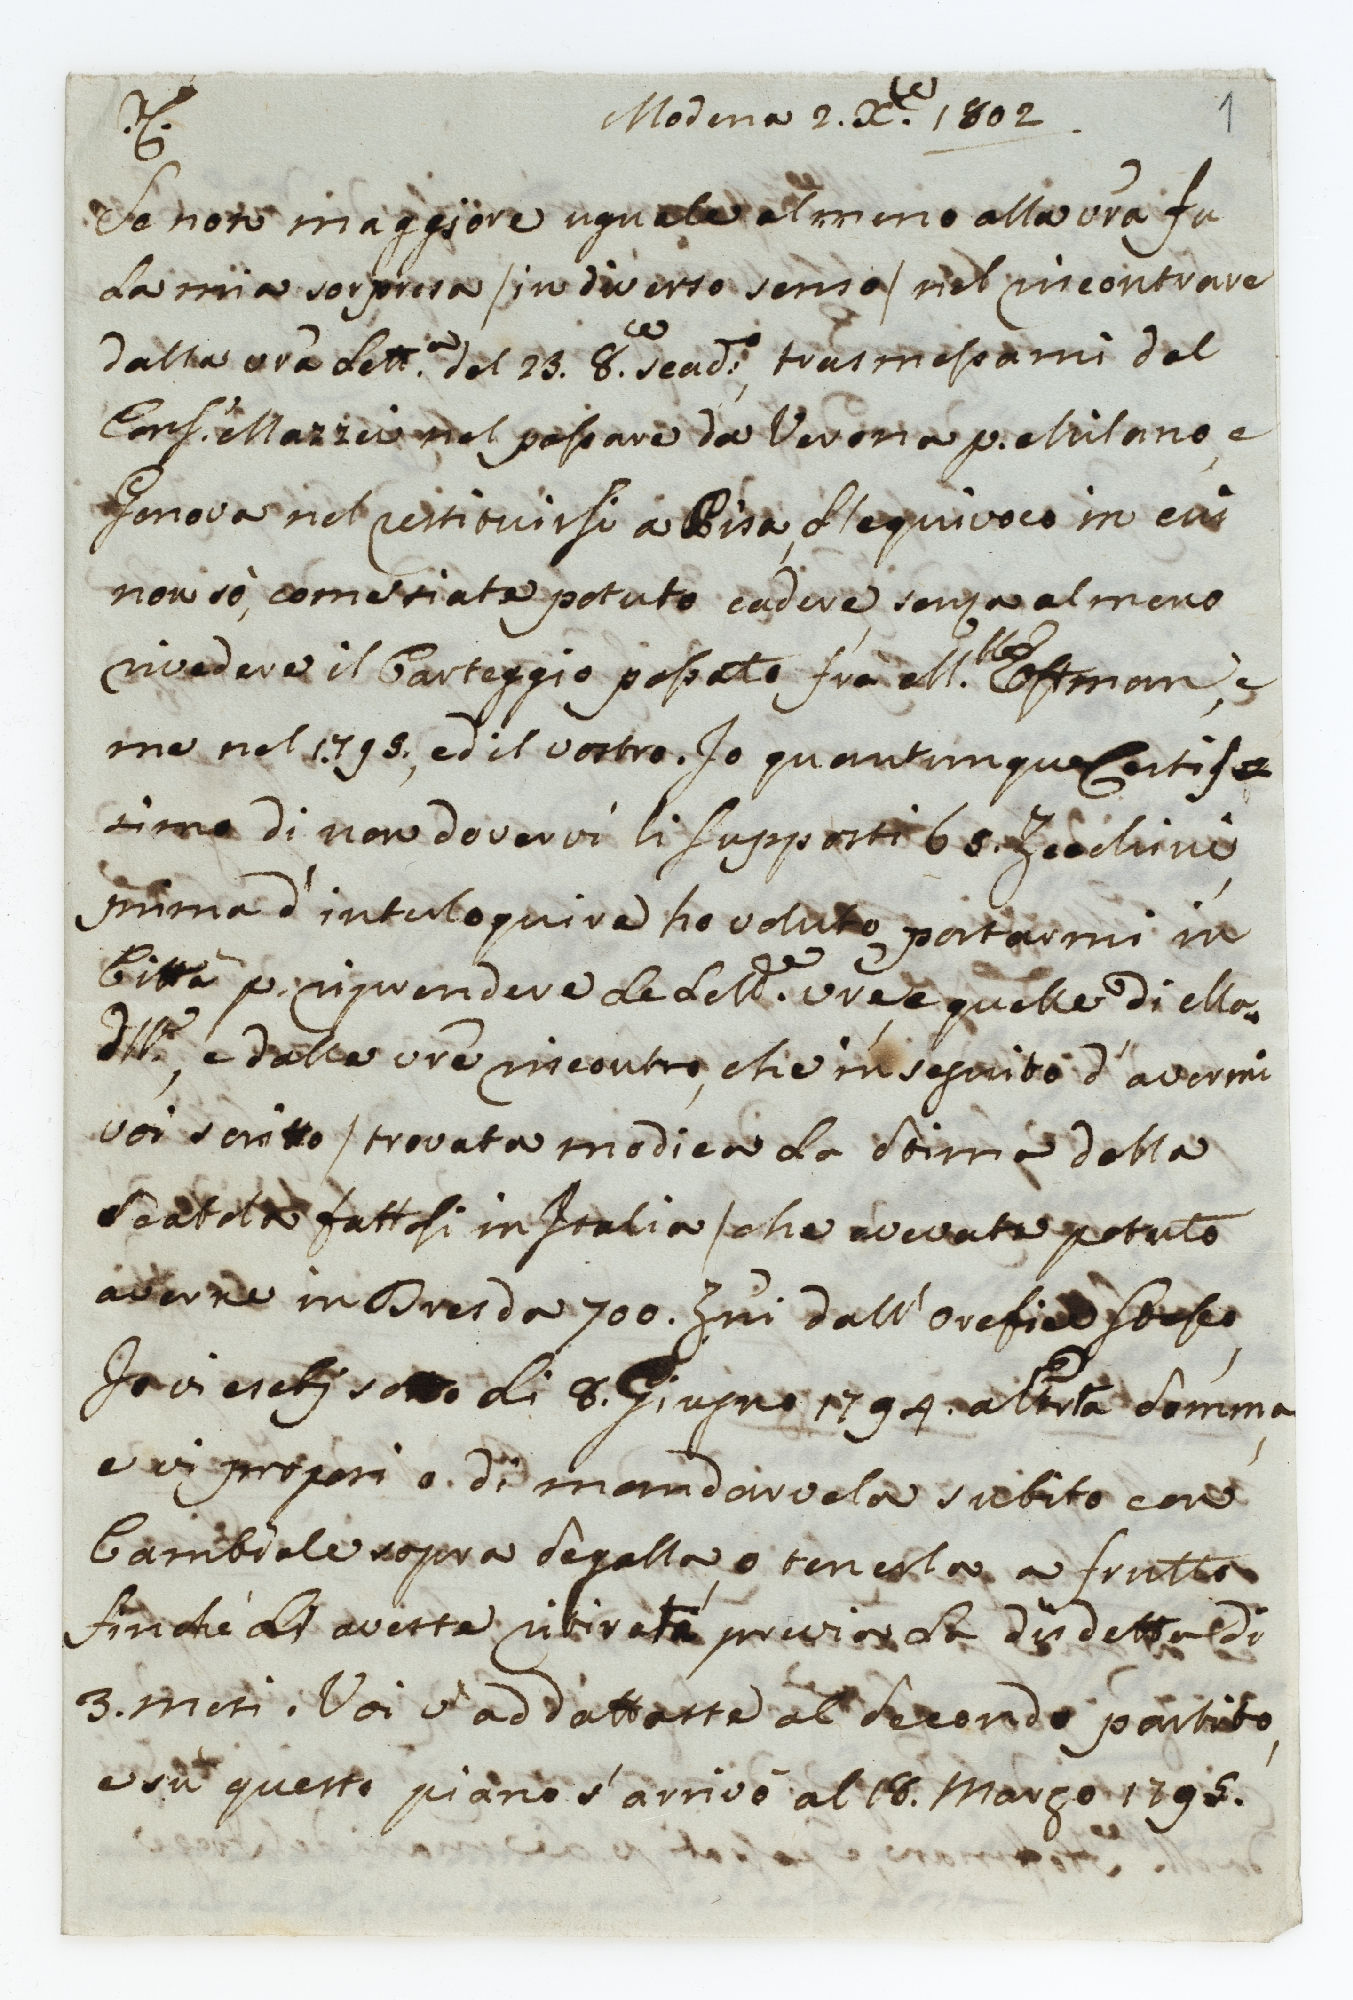 1
Modena 2. Xre. 1802
Se non maggiore uguale almeno alla vrã fu
La mia sorpresa /in diverso senso/ nel riscontrare
dalla vrã Lett.a del 23. 8.re scad.o, trasmessami dal
Cons.r Mazzei nel passare da Verona p. Milano, e
Genova nel restituirsi a Pisa, L'equivoco in cui
non sò, come siate potuto cadere, senza almeno
rivedere il Carteggio passato fra M.lle Hoffman, e
me nel 1795., ed il vostro. Io quantunque Certis-
simo di non dovervi li supposti 65. Zecchini,
prima d'interloquire ho voluto portarmi in
Città p. riprendere Le Lett.e vre, e quelle di Ma-
dll.e, e dalle vrẽ riscontro, che in seguito d'avermi
voi scritto /trovata modica La Stima della
Scatola fattasi in Italia/ che avevate potuto
averne in Dresda 700. Zñi dall'Orefice stesso,
Io vi esebj sotto li 8. Giugno 1794. altrtã Somma,
e vi proposi o di mandarvela subito con
Cambiale sopra Segalla, o tenerla a frutto
finché L' aveste ritirata, previa La disdetta di
3. mesi. Voi v'addattaste al Secondo partito,
e sù questo piano s'arrivò al 18. Marzo 1795.